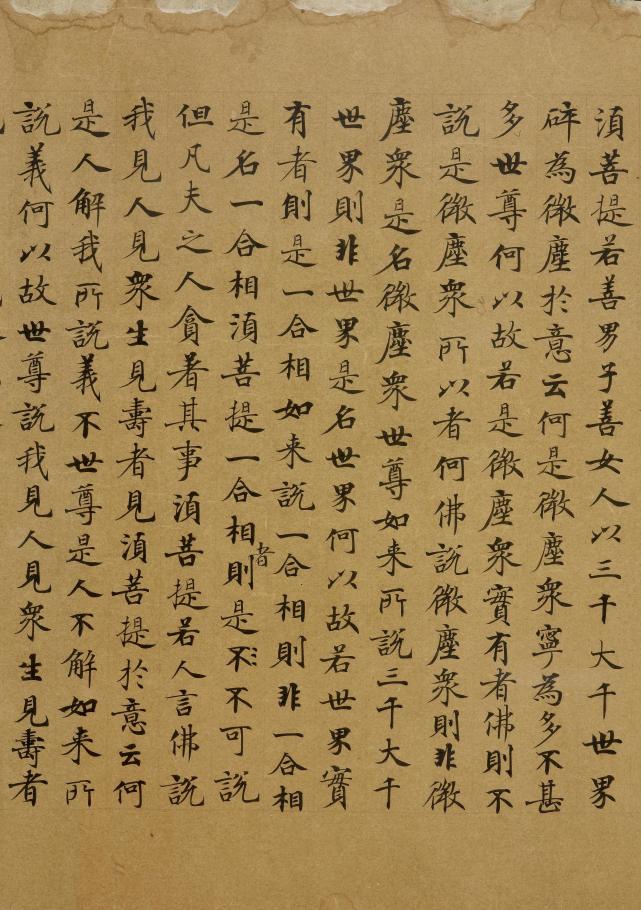 須菩提若善男子善女人以三千大千世界
碎為微塵於意云何是微塵衆寧為多不甚
多世尊何以故若是微塵衆實有者佛則不
說是微塵衆所以者何佛說微塵衆則非微
塵衆是名微塵衆世尊如来所說三千大千
世界則非世界是名世界何以故若世界實
有者則是一合相如来說一合相則非一合相
是名一合相須菩提一合相者則是不不可說
但凡夫之人貪着其事須菩提若人言佛說
我見人見衆生見壽者見須菩提於意云何
是人解我所說義不世尊是人不解如来所
說義何以故世尊說我見人見衆生見壽者